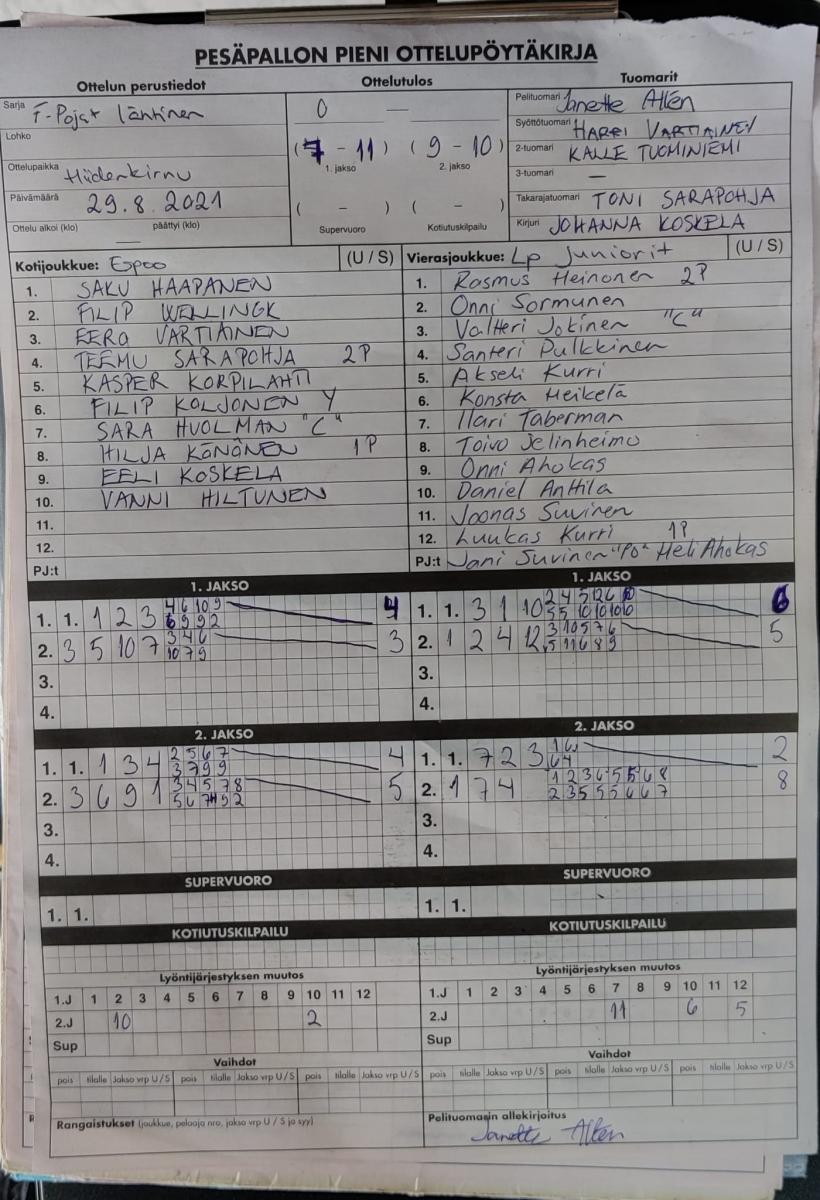 PESÄPALLON PIENI OTTELUPÖYTÄKIRJA
Ottelun perustiedot
Sarja F-Pojat läntinen
Lohko
Ottelupaikka Hiidenkirnu
Päivämäärä 29.8.2021
Ottelu alkoi (klo) — päättyi (klo)
Ottelutulos
0 —
(7 - 11) (9 - 10)
1. jakso 2. jakso
( - ) ( - )
Supervuoro Kotiutuskilpailu
Tuomarit
Pelituomari Janette Allén
Syöttötuomari HARRI VARTIAINEN
2-tuomari KALLE TUOMINIEMI
3-tuomari —
Takarajatuomari TONI SARAPOHJA
Kirjuri JOHANNA KOSKELA
Kotijoukkue: Espoo (U / S)
1. SAKU HAAPANEN
2. FILIP WELLINGK
3. EERO VARTIAINEN
4. TEEMU SARAPOHJA 2P
5. KASPER KORPILAHTI
6. FILIP KOLJONEN Y
7. SARA HUOLMAN "C"
8. HILJA KÖNÖNEN 1P
9. EELI KOSKELA
10. VANNI HILTUNEN
11.
12.
PJ:t
Vierasjoukkue: Lp Juniorit (U / S)
1. Rasmus Heinonen 2P
2. Onni Sormunen
3. Valtteri Jokinen "C"
4. Santeri Pulkkinen
5. Akseli Kurri
6. Konsta Heikelä
7. Ilari Taberman
8. Toivo Jelinheimo
9. Onni Ahokas
10. Daniel Anttila
11. Joonas Suvinen
12. Luukas Kurri 1P
PJ:t Jani Suvinen "PO" Heli Ahokas
1. JAKSO
1. 1. 1 2 3 4 6 10 9 4
6 9 9 2
2. 3 5 10 7 3 4 6 3
10 7 9
3.
4.
1. JAKSO
1. 1. 3 1 10 2 4 5 12 6 10 6
5 5 10 10 10 10
2. 1 2 4 12 3 10 5 7 6 5
5 11 6 8 9
3.
4.
2. JAKSO
1. 1. 1 3 4 2 5 6 7 4
3 7 9 9
2. 3 6 9 1 3 4 5 7 8 5
5 6 7 9 2
3.
4.
2. JAKSO
1. 1. 7 2 3 1 6 2
6 4
2. 1 7 4 1 2 3 6 5 5 6 8 8
2 3 5 5 5 6 6 7
3.
4.
SUPERVUORO
1. 1.
SUPERVUORO
1. 1.
KOTIUTUSKILPAILU
KOTIUTUSKILPAILU
Lyöntijärjestyksen muutos
1.J 1 2 3 4 5 6 7 8 9 10 11 12
2.J 10 2
Sup
Vaihdot
pois tilalle Jakso vrp U / S pois tilalle Jakso vrp U / S pois tilalle Jakso vrp U / S
Rangaistukset (joukkue, pelaaja nro, jakso vrp U / S ja syy)
Lyöntijärjestyksen muutos
1.J 1 2 3 4 5 6 7 8 9 10 11 12
2.J 11 6 5
Sup
Vaihdot
pois tilalle Jakso vrp U / S pois tilalle Jakso vrp U / S pois tilalle Jakso vrp U / S
Pelituomarin allekirjoitus
Janette Allén